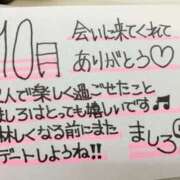 10月
会いに来てくれて
ありがとう♡
2人で楽しく過ごせたこと
ましろはとっても嬉しいです🎵
淋しくなる前にまた
デートしようね!!
ましろ